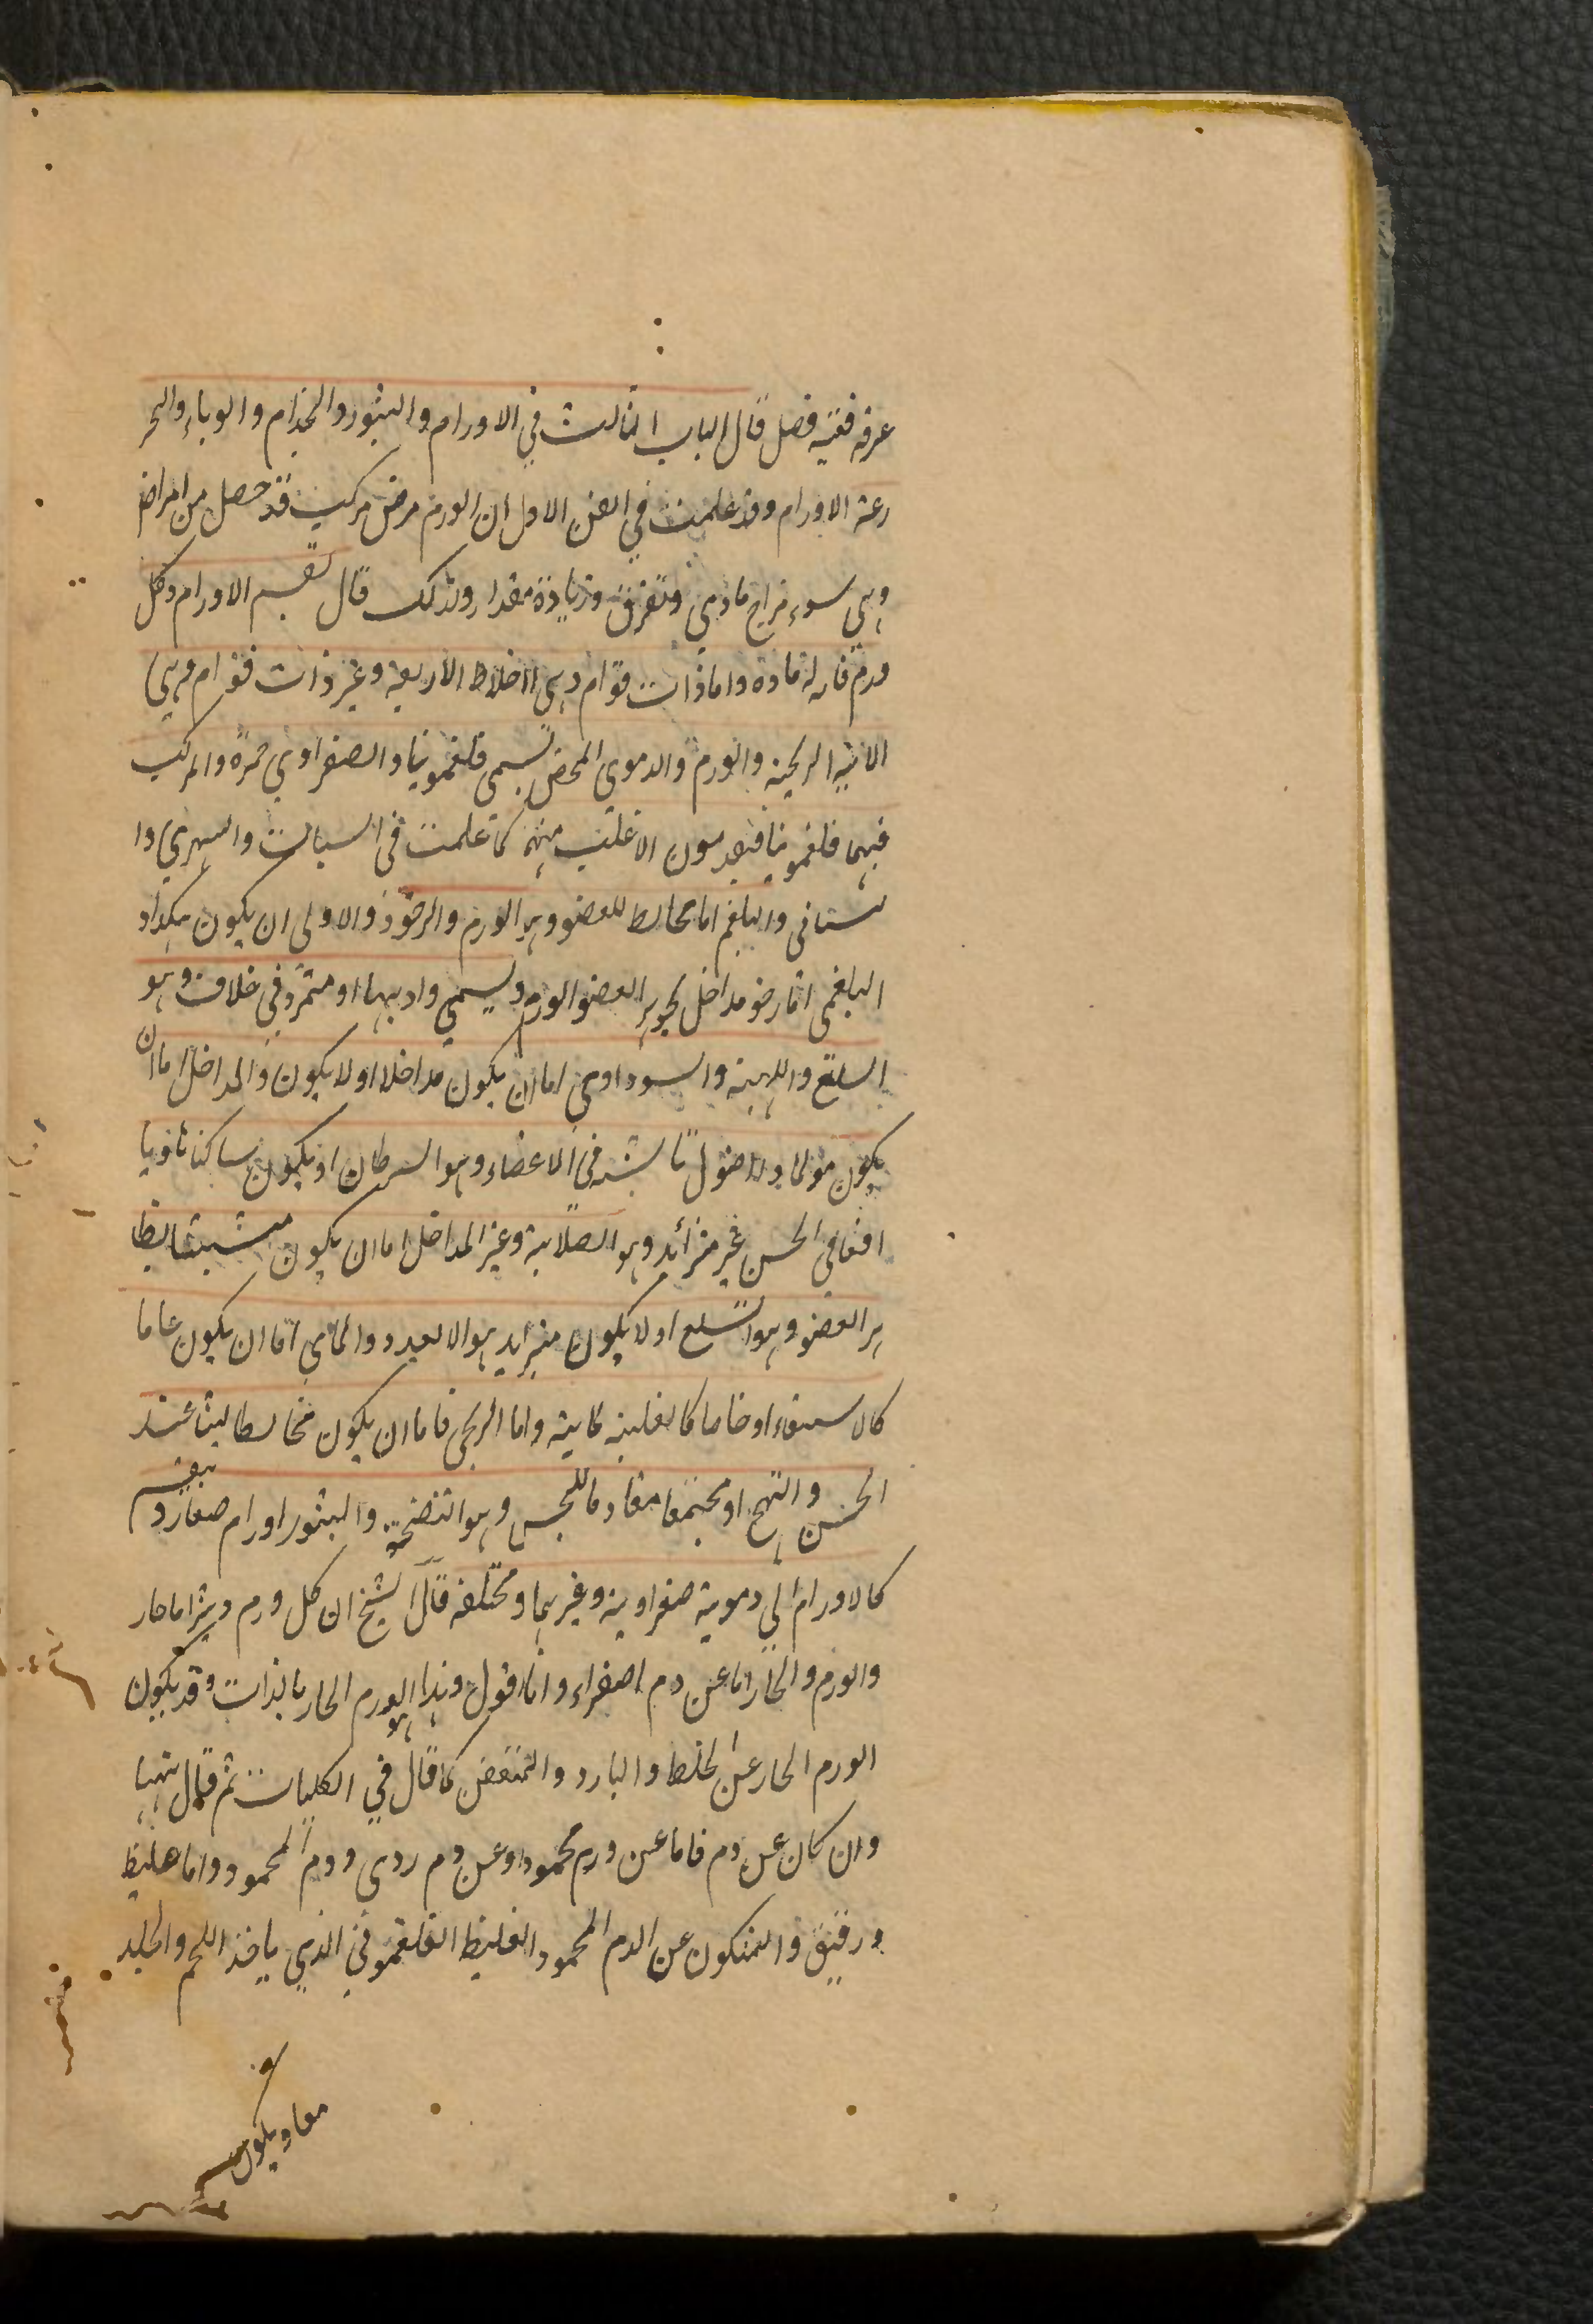 عرفه ففيه فصل قال الباب الثالث في الاورام والبثور والجذام والوباء والتحر
رعنه الاورام وقد علمت في الفن الاول ان الورم مرض مركب قد حصل من امراض
وهي سوء مزاج مادي وتفرق وزيادة مقدار ولذلك قال تقسيم الاورام وكل
ورم فله مادة واما ذات قوام وهي الاخلاط الاربعة وغير ذات قوام وهي
المائية الريحية والورم والدموي المحض يسمى فلغمونيا والصفراوي حمرة والمركب
فيهما فلغمونيا فيقدمون الاغلب منهما كما علمت في السبات والسهري وا
لسباتي والبلغم اما مخالط للعضو وهو الورم والرخو ذوالاولى ان يكون هكذا و
البلغمي اما رخو مداخل لجوهر العضو الورم ويسمى واديما او متميز في غلاف وهو
السلع واللينة والسوداوي اما ان يكون مداخلا اولا يكون والمداخل اما ان
يكون مولما وله اصول ناشبة في الاعضاء وهو السرطان او يكون ساكنا ناويا
افعا في الحس غير متزائد وهو الصلابة وغير المداخل اما ان يكون متشبثا بظا
هر العضو وهو السلع اولا يكون متزايد هو الا لعدد والمائي اما ان يكون عاما
كالاستسقاء او خاصا كالقلية مائية واما الريحي فاما ان يكون مخالطا لينا عند
الحس والتهيج او مجتمعا مقاوما للمجس وهو النفخة والبثور اورام صغار وتنقسم
كالاورام الى دموية صفراوية وغيرهما ومختلفه قال الشيخ ان كل ورم وبثر اما حار
والورم والحار اما عن دم اصفراء وانا اقول وهذا هو الورم الحار بالذات وقد يكون
الورم الحار عن الخلط والبارد والمتعفن كما قال في الكليات ثم قال ههنا
وان كان عن دم فاما عن ورم محمود او عن دم ردي ودم المحمود واما غليظ
ورقيق والمتكون عن الدم المحمود الغليظ الفلغموني الذي ياخذ اللحم والجلد
معا ويكون